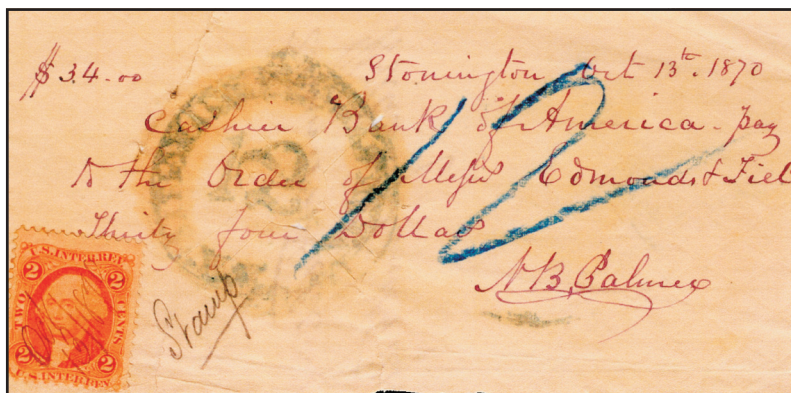 $34.00 Stonington Oct 13th. 1870
Cashier Bank of America - pay
to the Order of Messrs Edmonds & Fiel
Thirty four Dollars
N B, Palmer
12
Stamp
U.S. INTER. REV.
2 2
TWO CENTS
2 2
U.S. INTER. REV.